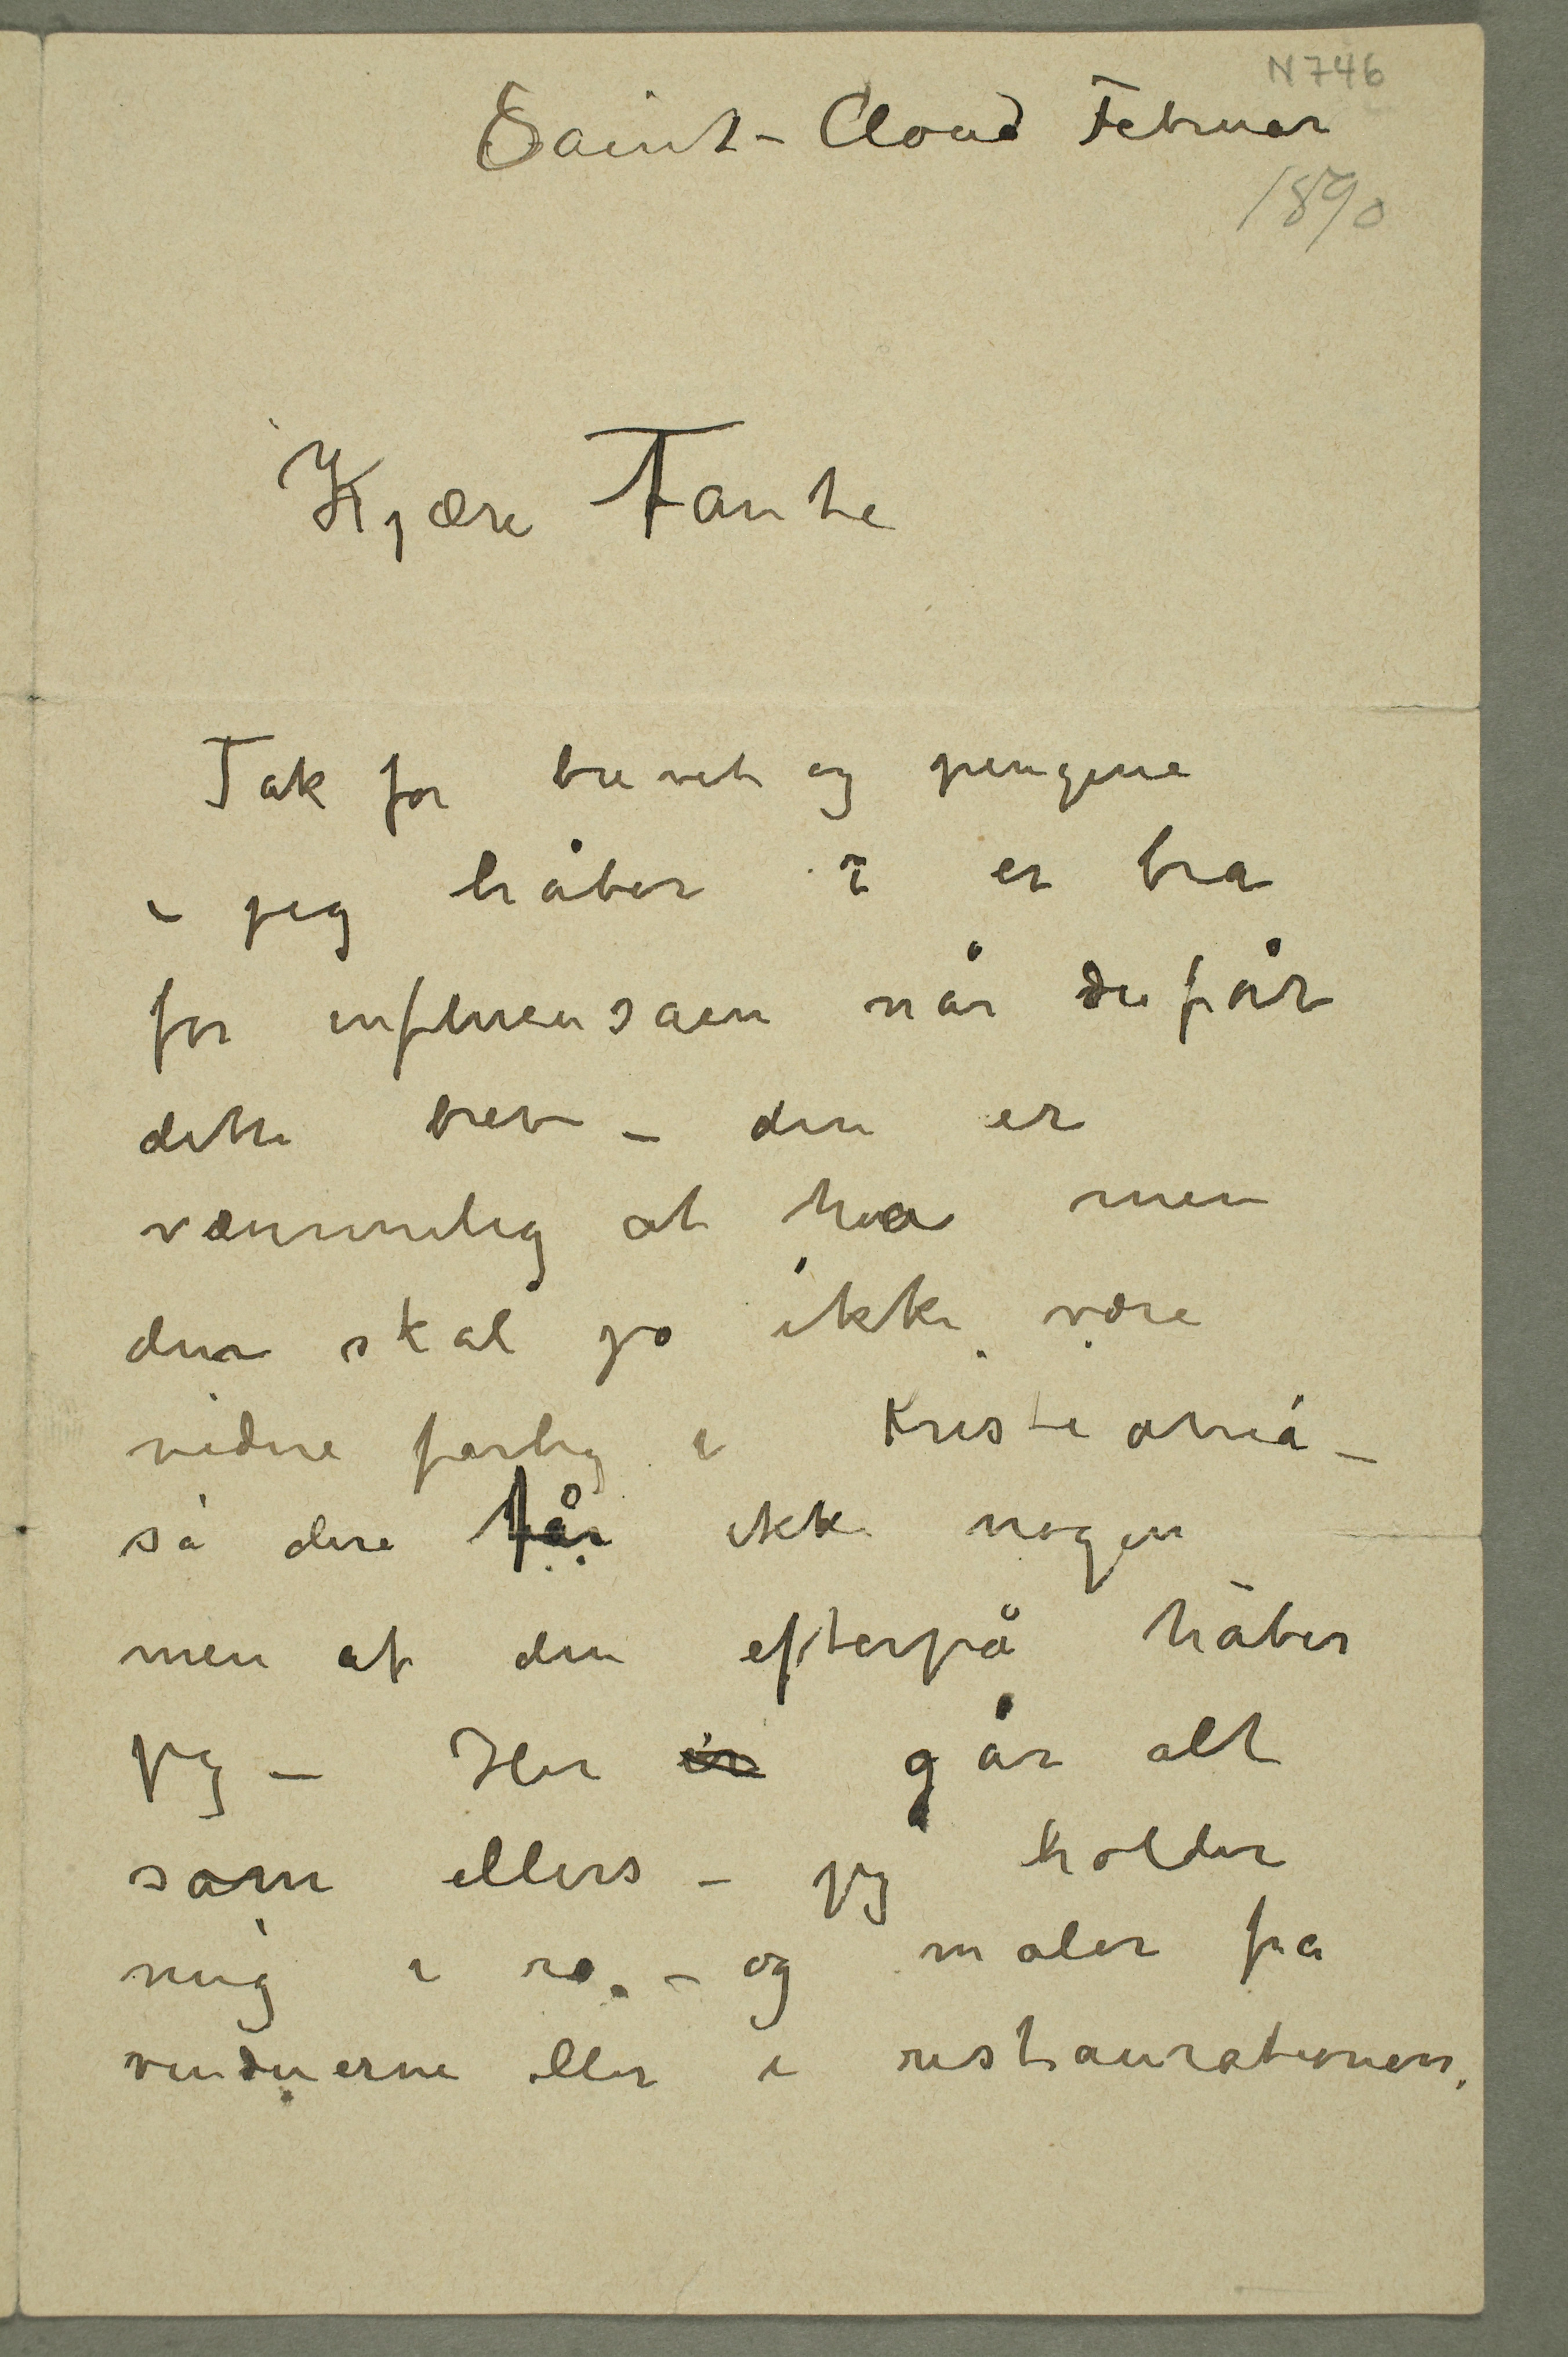 N 746
Saint-Cloud Februar
1890
Kjære Tante
Tak for brevet og pengene
– jeg håber I er bra
for influensaen når du får
dette brev – den er
væmmelig at ha men
den skal jo ikke være
videre farlig i Kristiania –
så dere får ikke nogen
men af den efterpå håber
jeg – Her er går alt
som ellers – jeg holder
mig i ro. – og maler fra
vinduerne eller i restaurationen.